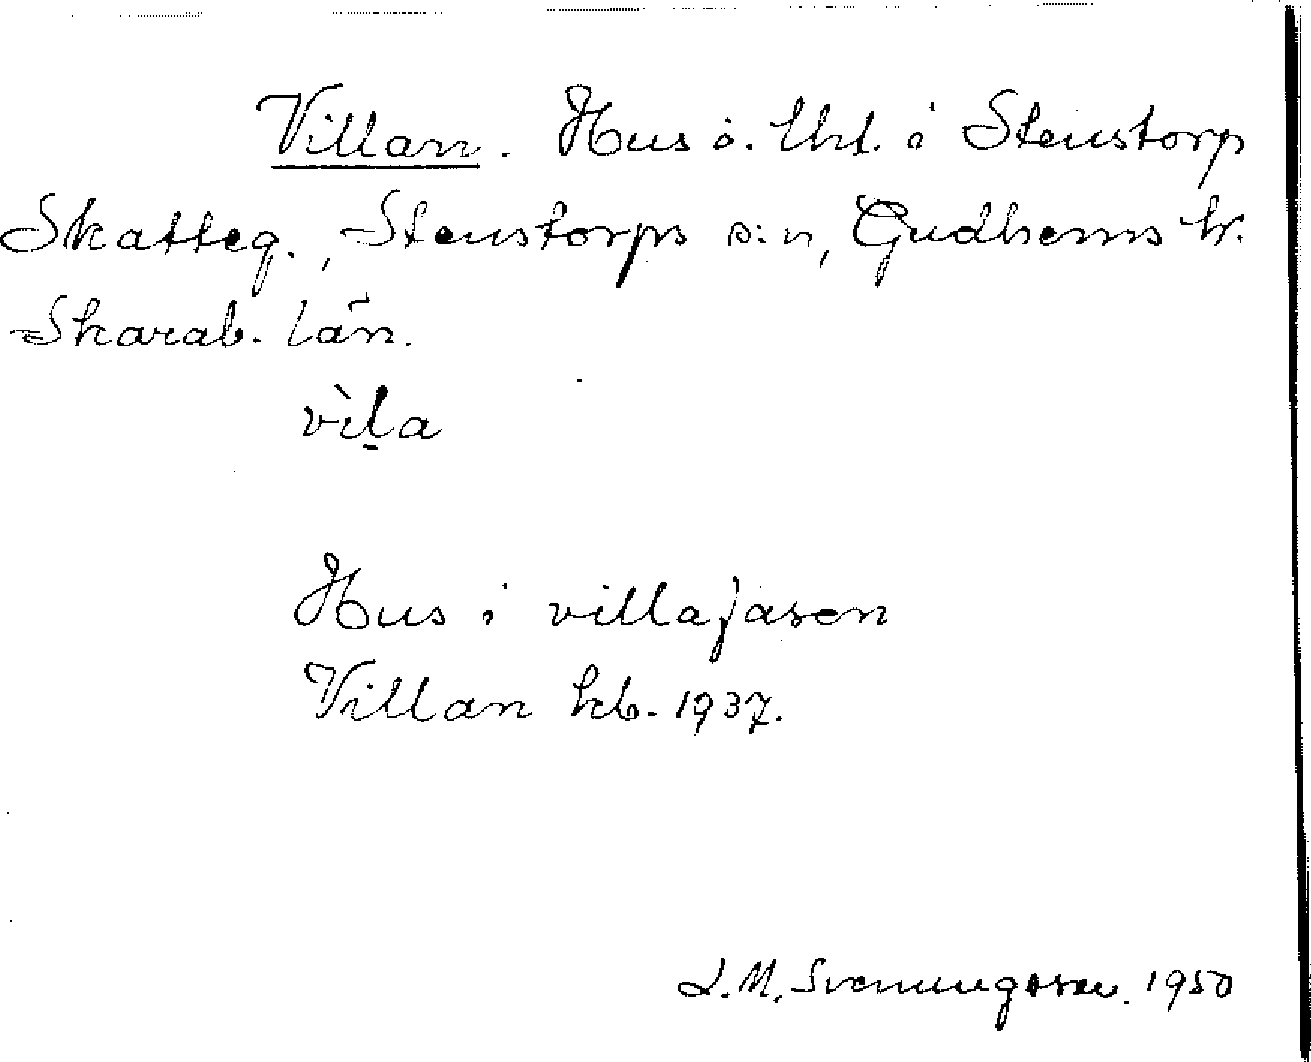 Villan. Hus o. lht. i Stenstorp
Skatteg., Stenstorps s:n, Gudhems hr.
Skarab. län.
vìl̠a
Hus i villafasen
Villan kb. 1937.
L.M. Svenungsson. 1950